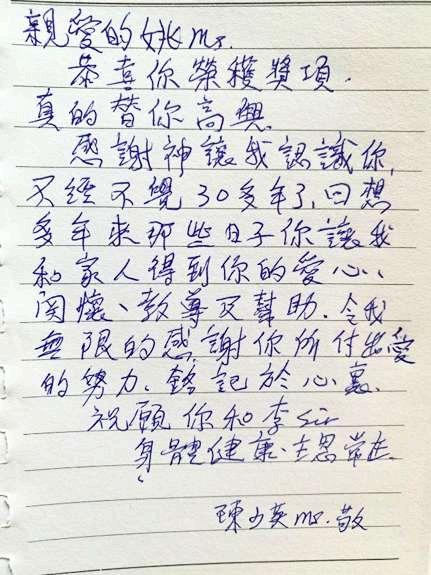 親愛的姚Ms.
恭喜你榮獲獎項.
真的替你高興
感謝神讓我認識你,
不經不覺30多年了,回想
多年來那些日子你讓我
和家人得到你的愛心、
関懷、教導及幫助.令我
無限的感謝你所付出愛
的努力.銘記於心裏、
祝願你和李Sir
身體健康、主恩常在.
陳少英Ms.敬